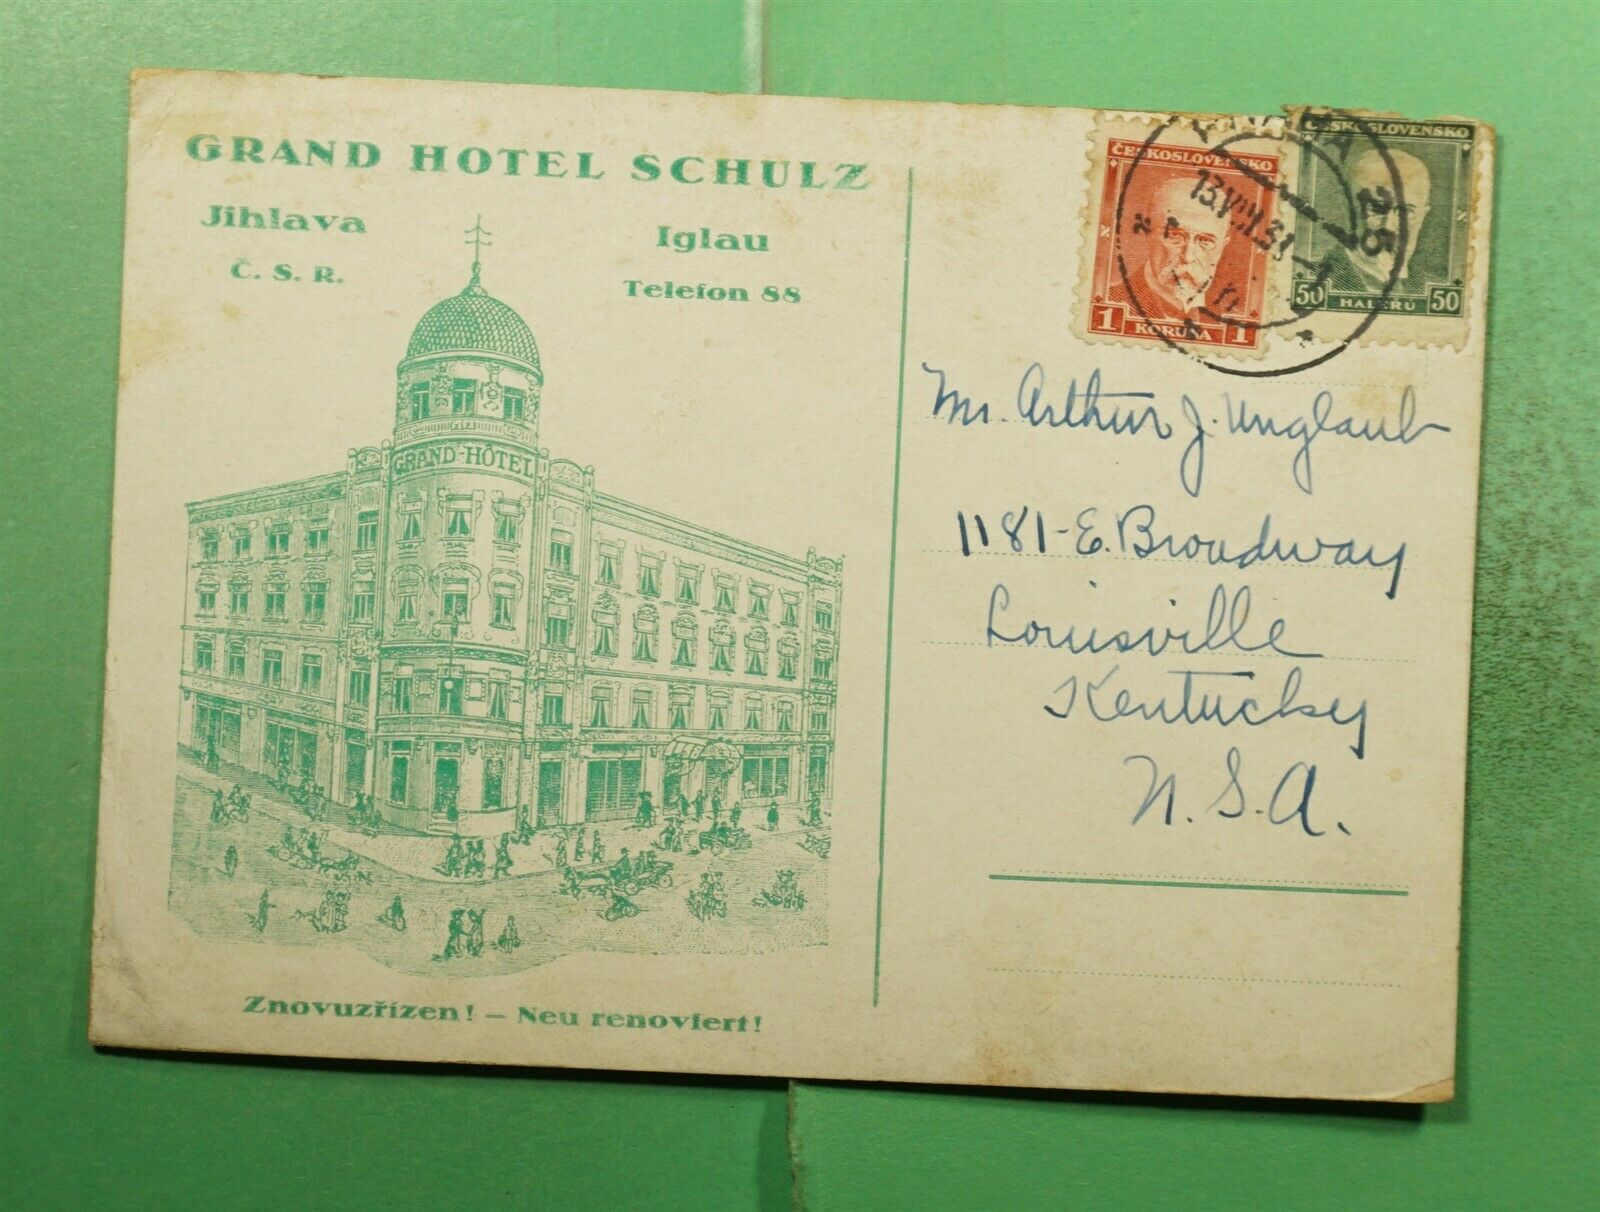 GRAND HOTEL SCHULZ
Jihlava
Č. S. R.
Iglau
Telefon 88
GRAND-HOTEL
Znovuzřízen! – Neu renoviert!
ČESKOSLOVENSKO
1 KORUNA 1
ČESKOSLOVENSKO
50 HALÉŘŮ 50
PRAHA 25
13.VIII.31
Mr. Arthur J. Unglaub
1181-E. Broadway
Louisville
Kentucky
U.S.A.